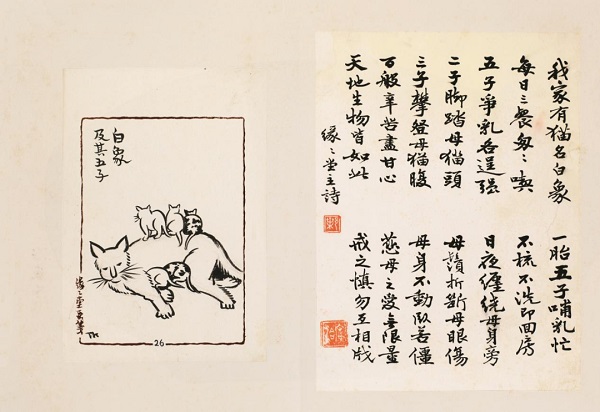 白象
及其五子
緣〻堂畫箋
TK
26
我家有猫名白象 一胎五子哺乳忙
每日三餐匆〻喫 不梳不洗即回房
五子爭乳各逞强 日夜纏繞母身旁
二子脚踏母猫頭 母鬚折斷母眼傷
三子攀登母猫腹 母身不動臥若僵
百般辛苦盡甘心 慈母之愛無限量
天地生物皆如此 戒之慎勿互相戕
緣〻堂主詩